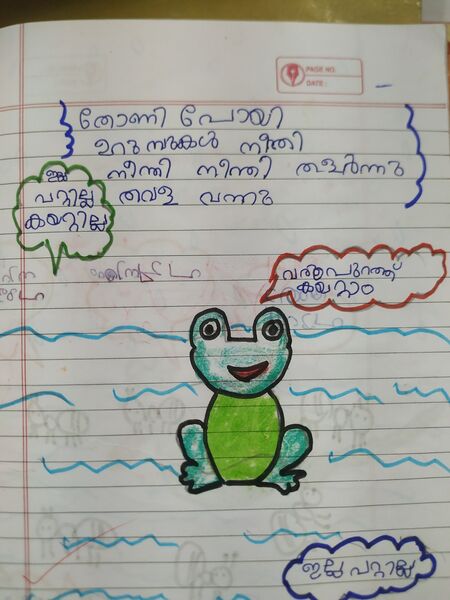 PAGE NO.
DATE:
തോണി പോയി
ഉറുമ്പുകൾ നീന്തി
നീന്തി നീന്തി തളർന്നു
തവള വന്നു
പറ്റില്ല
കയറ്റില്ല
പുറത്ത്
കയറ്റാം
ഇല്ല പറ്റില്ല